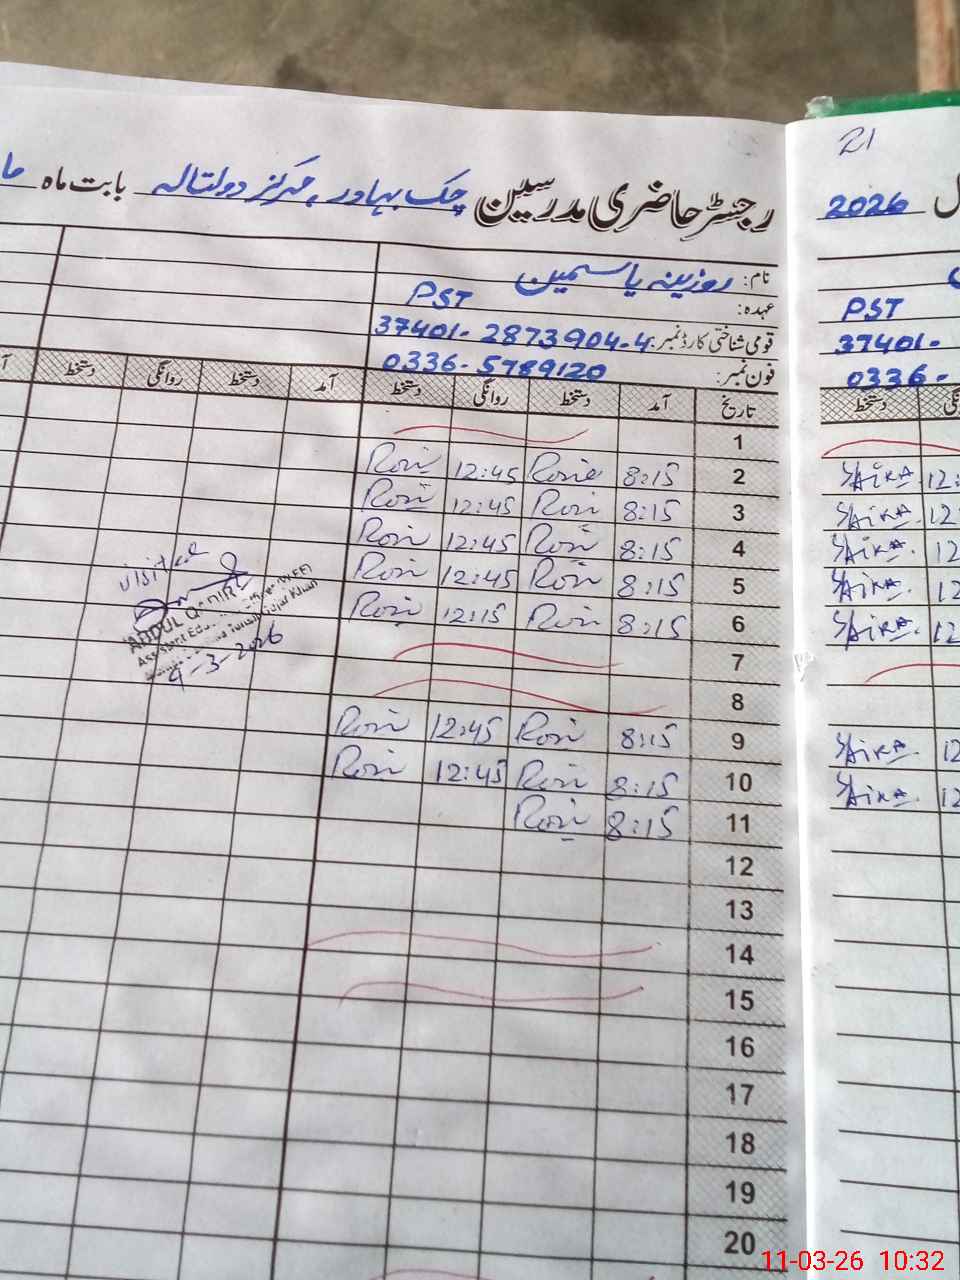 21
رجسٹر حاضری مدرسین چک بہادر، مرکز دولتالہ بابت ماہ
2026
نام: روزینہ یاسمین
عہدہ: PST
PST
قومی شناختی کارڈ نمبر: 37401-2873904-4
37401-
فون نمبر: 0336-5789120
0336-
تاریخ آمد دستخط روانگی دستخط آمد دستخط روانگی دستخط
دستخط
1
2 8:15 Rozi 12:45 Rozi
SAiRA 12:
3 8:15 Rozi 12:45 Rozi
SAiRA 12
4 8:15 Rozi 12:45 Rozi
SAiRA 12
5 8:15 Rozi 12:45 Rozi
SAiRA 12
6 8:15 Rozi 12:15 Rozi
SAiRA 12
7
8
9 8:15 Rozi 12:45 Rozi
SAiRA 12
10 8:15 Rozi 12:45 Rozi
SAiRA 12
11 8:15 Rozi
12
13
14
15
16
17
18
19
20
visited
ABDUL QADIR
Gujar Khan
4-3-2026
11-03-26 10:32